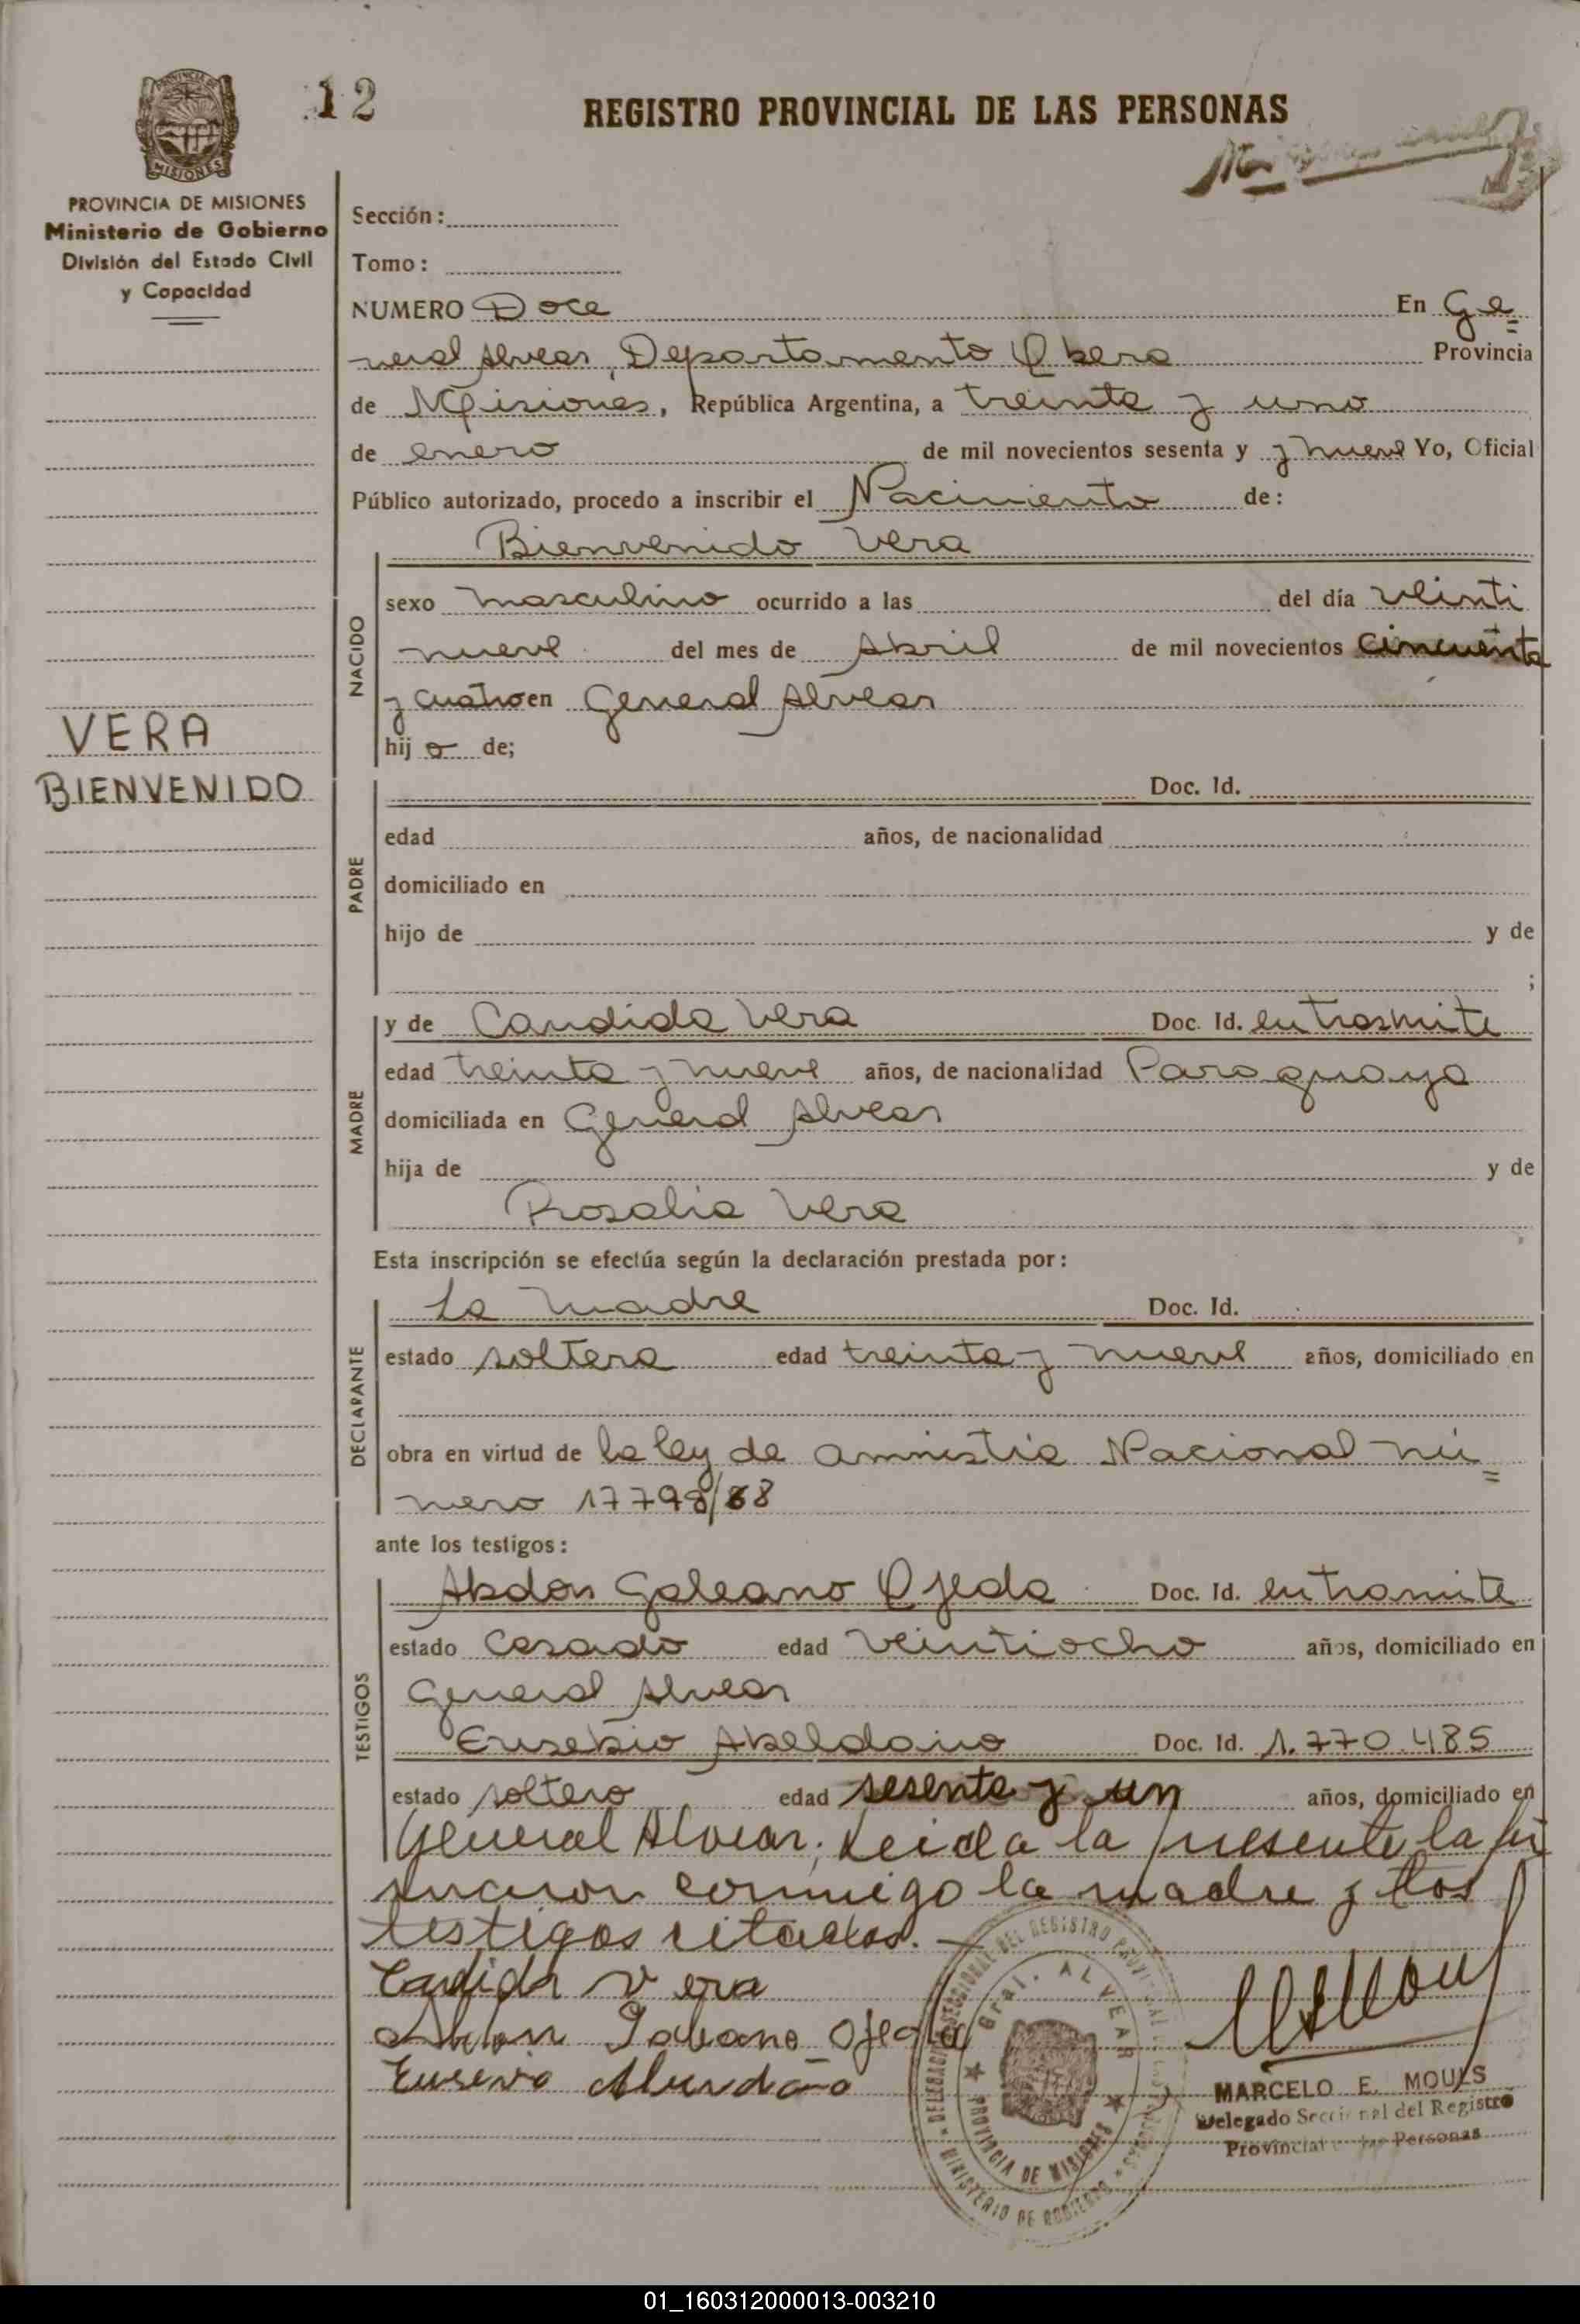 12
REGISTRO PROVINCIAL DE LAS PERSONAS
PROVINCIA DE
MISIONES
PROVINCIA DE MISIONES
Ministerio de Gobierno
División del Estado Civil
y Capacidad
VERA
BIENVENIDO
Sección:
Tomo:
NUMERO Doce En Ge=
neral Alvear, Departamento Obera Provincia
de Misiones, República Argentina, a treinta y uno
de enero de mil novecientos sesenta y y nueve Yo, Oficial
Público autorizado, procedo a inscribir el Nacimiento de:
NACIDO
Bienvenido Vera
sexo masculino ocurrido a las del día veinti
nueve del mes de Abril de mil novecientos cincuenta
y cuatro en General Alvear
hij o de;
PADRE
Doc. Id.
edad años, de nacionalidad
domiciliado en
hijo de y de
;
MADRE
y de Candida Vera Doc. Id. en trasmite
edad treinta y nueve años, de nacionalidad Paraguaya
domiciliada en General Alvear
hija de y de
Rosalia Vera
Esta inscripción se efectúa según la declaración prestada por:
DECLARANTE
La madre Doc. Id.
estado soltera edad treinta y nueve años, domiciliado en
obra en virtud de la ley de amnistia Nacional nú=
mero 17798/68
ante los testigos:
TESTIGOS
Abdon Galeano Ojeda Doc. Id. en tramite
estado casado edad veintiocho años, domiciliado en
General Alvear
Eusebio Abeldaño Doc. Id. 1.770.485
estado soltero edad sesenta y un años, domiciliado en
General Alvear; Leida la presente la fir
maron conmigo la madre y los
testigos citados. —
Candida vera
Abdon Galeano Ojeda
Gral. ALVEAR
PROVINCIA DE MISIONES
MARCELO E. MOULS
Delegado Seccional del Registro
Provincial de las Personas
01_160312000013-003210